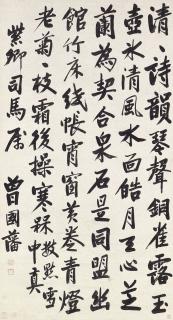 清〻詩韻琴聲銅雀露玉
壺冰清風水面皓月天心芝
蘭為契合泉石是同盟幽
館竹床紙帳宵窗黃卷青燈
老菊枝霜後操寒梅數點雪
中真
紫卿司馬屬
曾國藩